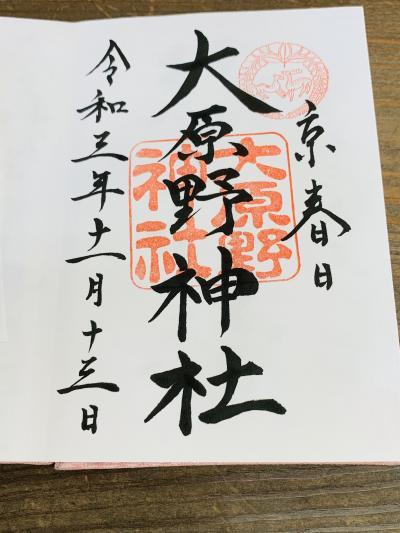 京春日
大原野神社
大原野
神社
令和三年十一月十三日